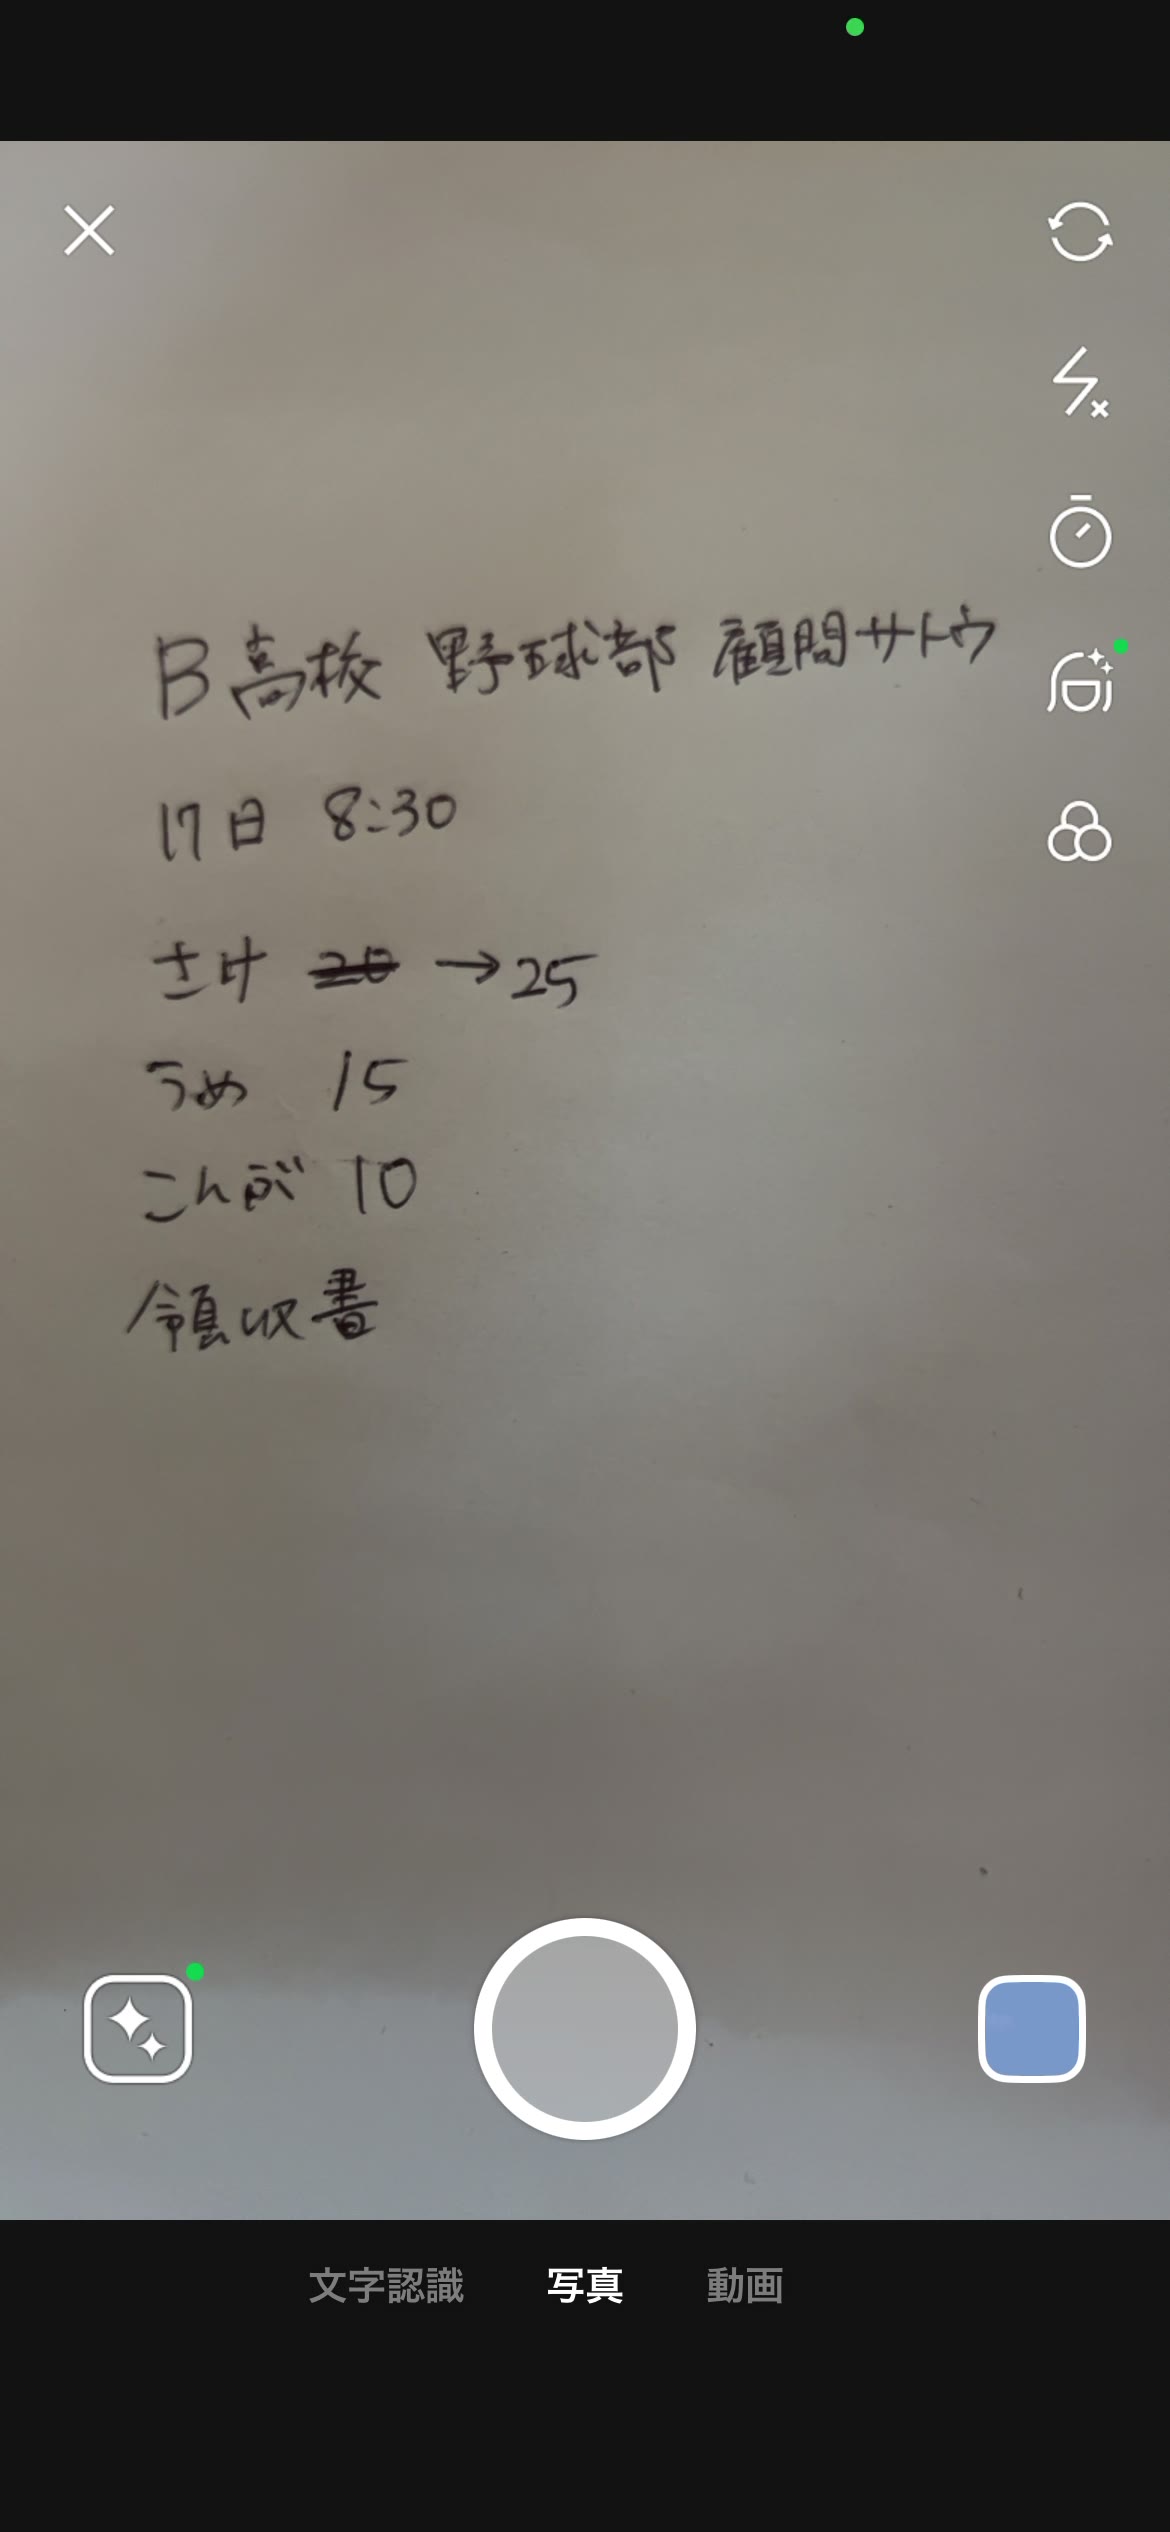 B高校 野球部 顧問サトウ
17日 8:30
さけ 20 →25
うめ 15
こんぶ 10
領収書
文字認識 写真 動画